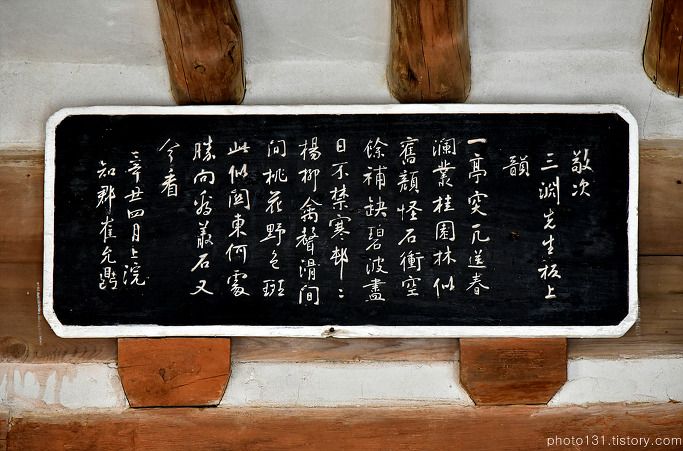 敬次
三淵先生板上
韻
一亭突兀送春
瀾叢桂園林似
舊顏怪石衝空
餘補缺碧波盡
日不禁寒邨〻
楊柳禽聲滑間
間桃花野色班
此似関東何處
勝向為叢石又
今看
辛丑四月上浣
知郡崔允鼎
photo131.tistory.com